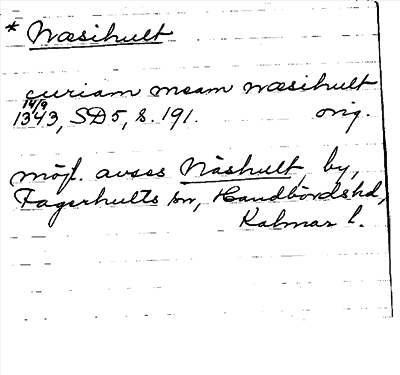 * Næsihult
curiam meam næsihult
14/9
1343, SD5, s. 191. orig.
möjl. avses Näshult, by,
Fagerhults sn, Handbördshd,
Kalmar l.